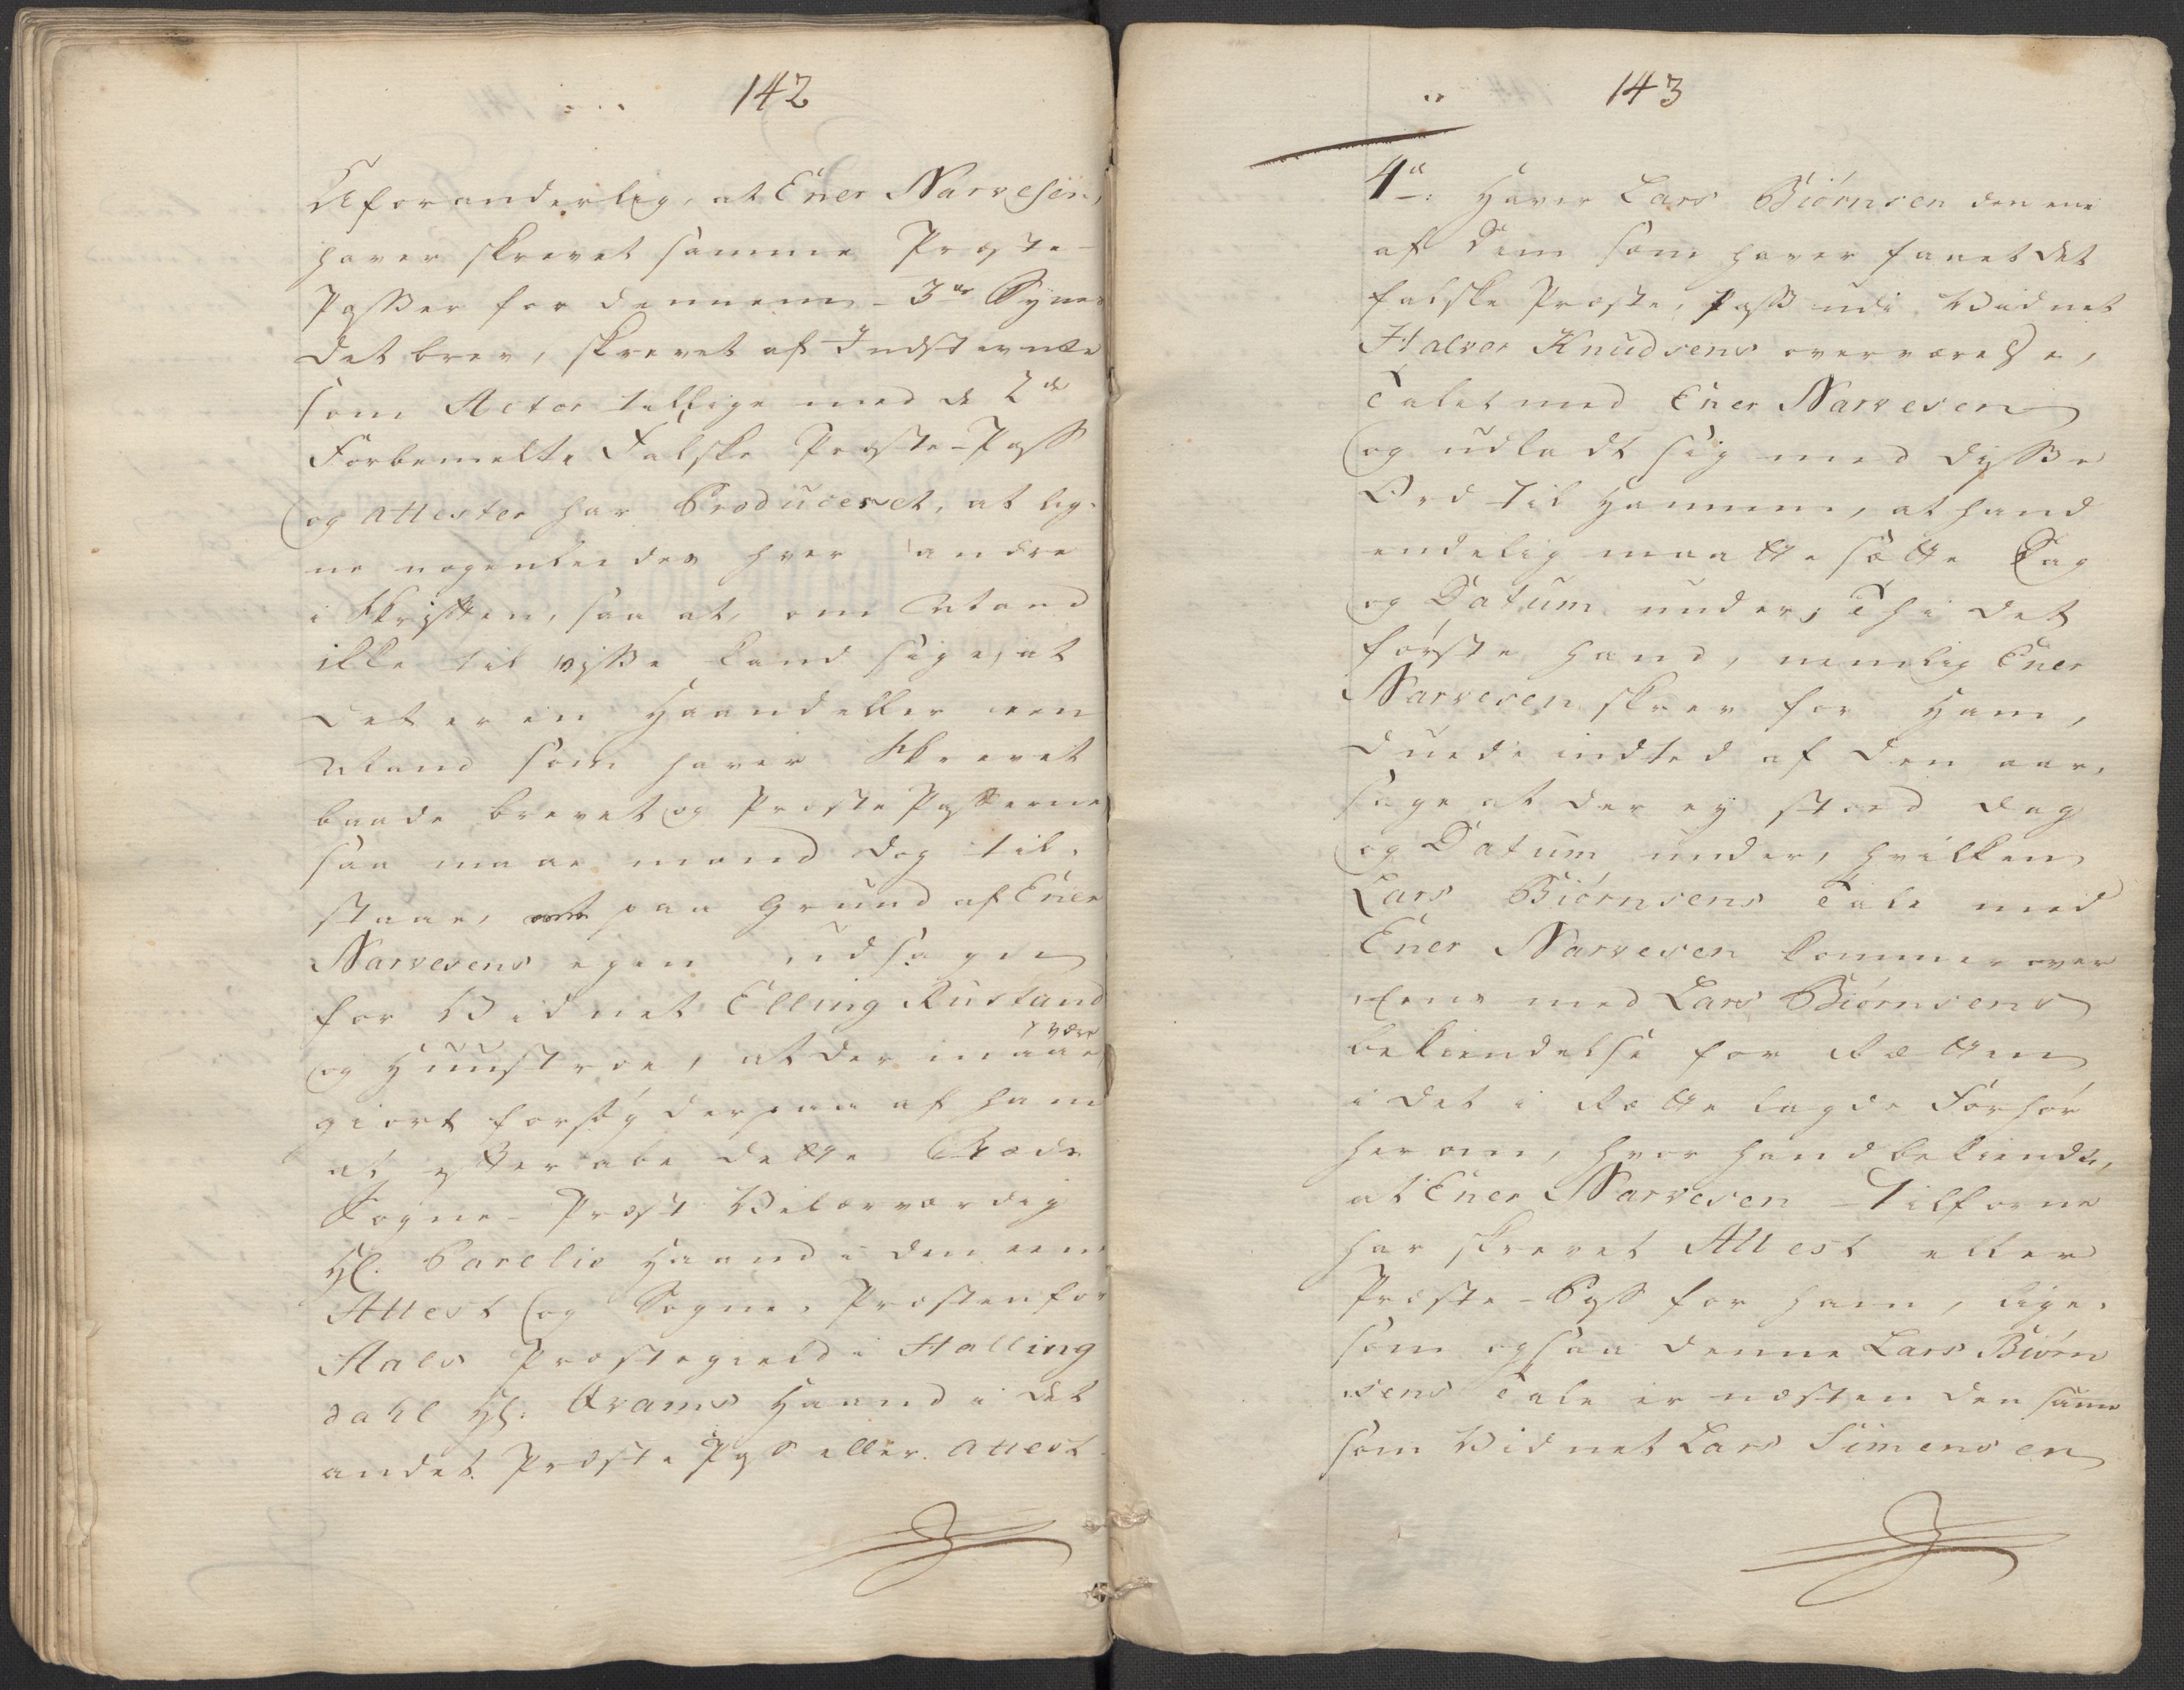 142
Uforanderlig, at Ener Narvesen,
haver skrevet samme Præste-
Passer for dennem - 3die Synes
det brev, skrevet af Indstevnte
som Actor tillige med de 2de
Forbemelte Falske Præste-Pass
og attester har Produceret, at lig-
ne nogenledes hver andre
i Skriften, saa at, om Mand
ikke til visse kand sige, at
det er en Haand eller een
Mand som haver Skrevet
baade brevet og Præste Passerne
saa maae mand dog til-
staae, paa Grund af Ener
Narvesens egen udsagen
for Vidnet Elling Rustand
og Huustroe, at der maae være
giort forsøg derpaa af ham
at efterabe dette Stæds
Sogne-Præst Velærværdig
Hr. Parelio Haand i den een
Attest og Sogne-Præsten for
Aals Præstegield i Halling
dahl Hr: Abrams Haand i det
andet Præste Pass eller attest
143
4de: Haver Lars Biørnsen den ene
af dem som haver faaet det
falske Præste, pass udi Vidnet
Halvor Knudsens overværelse,
Talet med Ener Narvesen
og udladt sig med disse
Ord til Hannem, at hand
endelig maatte sætte Dag
og Datum under, Thi det
første hand, nemlig Ener
Narvesen skrev for Ham,
duede indted af den aar-
sage at der ey stoed dag
og Datum under, hvilken
Lars Biørnsens Tale med
Ener Narvesen kommer over
eens med Lars Biørnsens
bekiendelse for Rætten
i det i Rætte lagde Forhør
herom, hvor hand bekiendte,
at Ener Narvesen Tilforne
har skrevet Attest eller
Præste-Pass for ham, lige-
som ogsaa denne Lars Biørn
sens Tale er næsten den samme
som Vidnet Lars Simensen